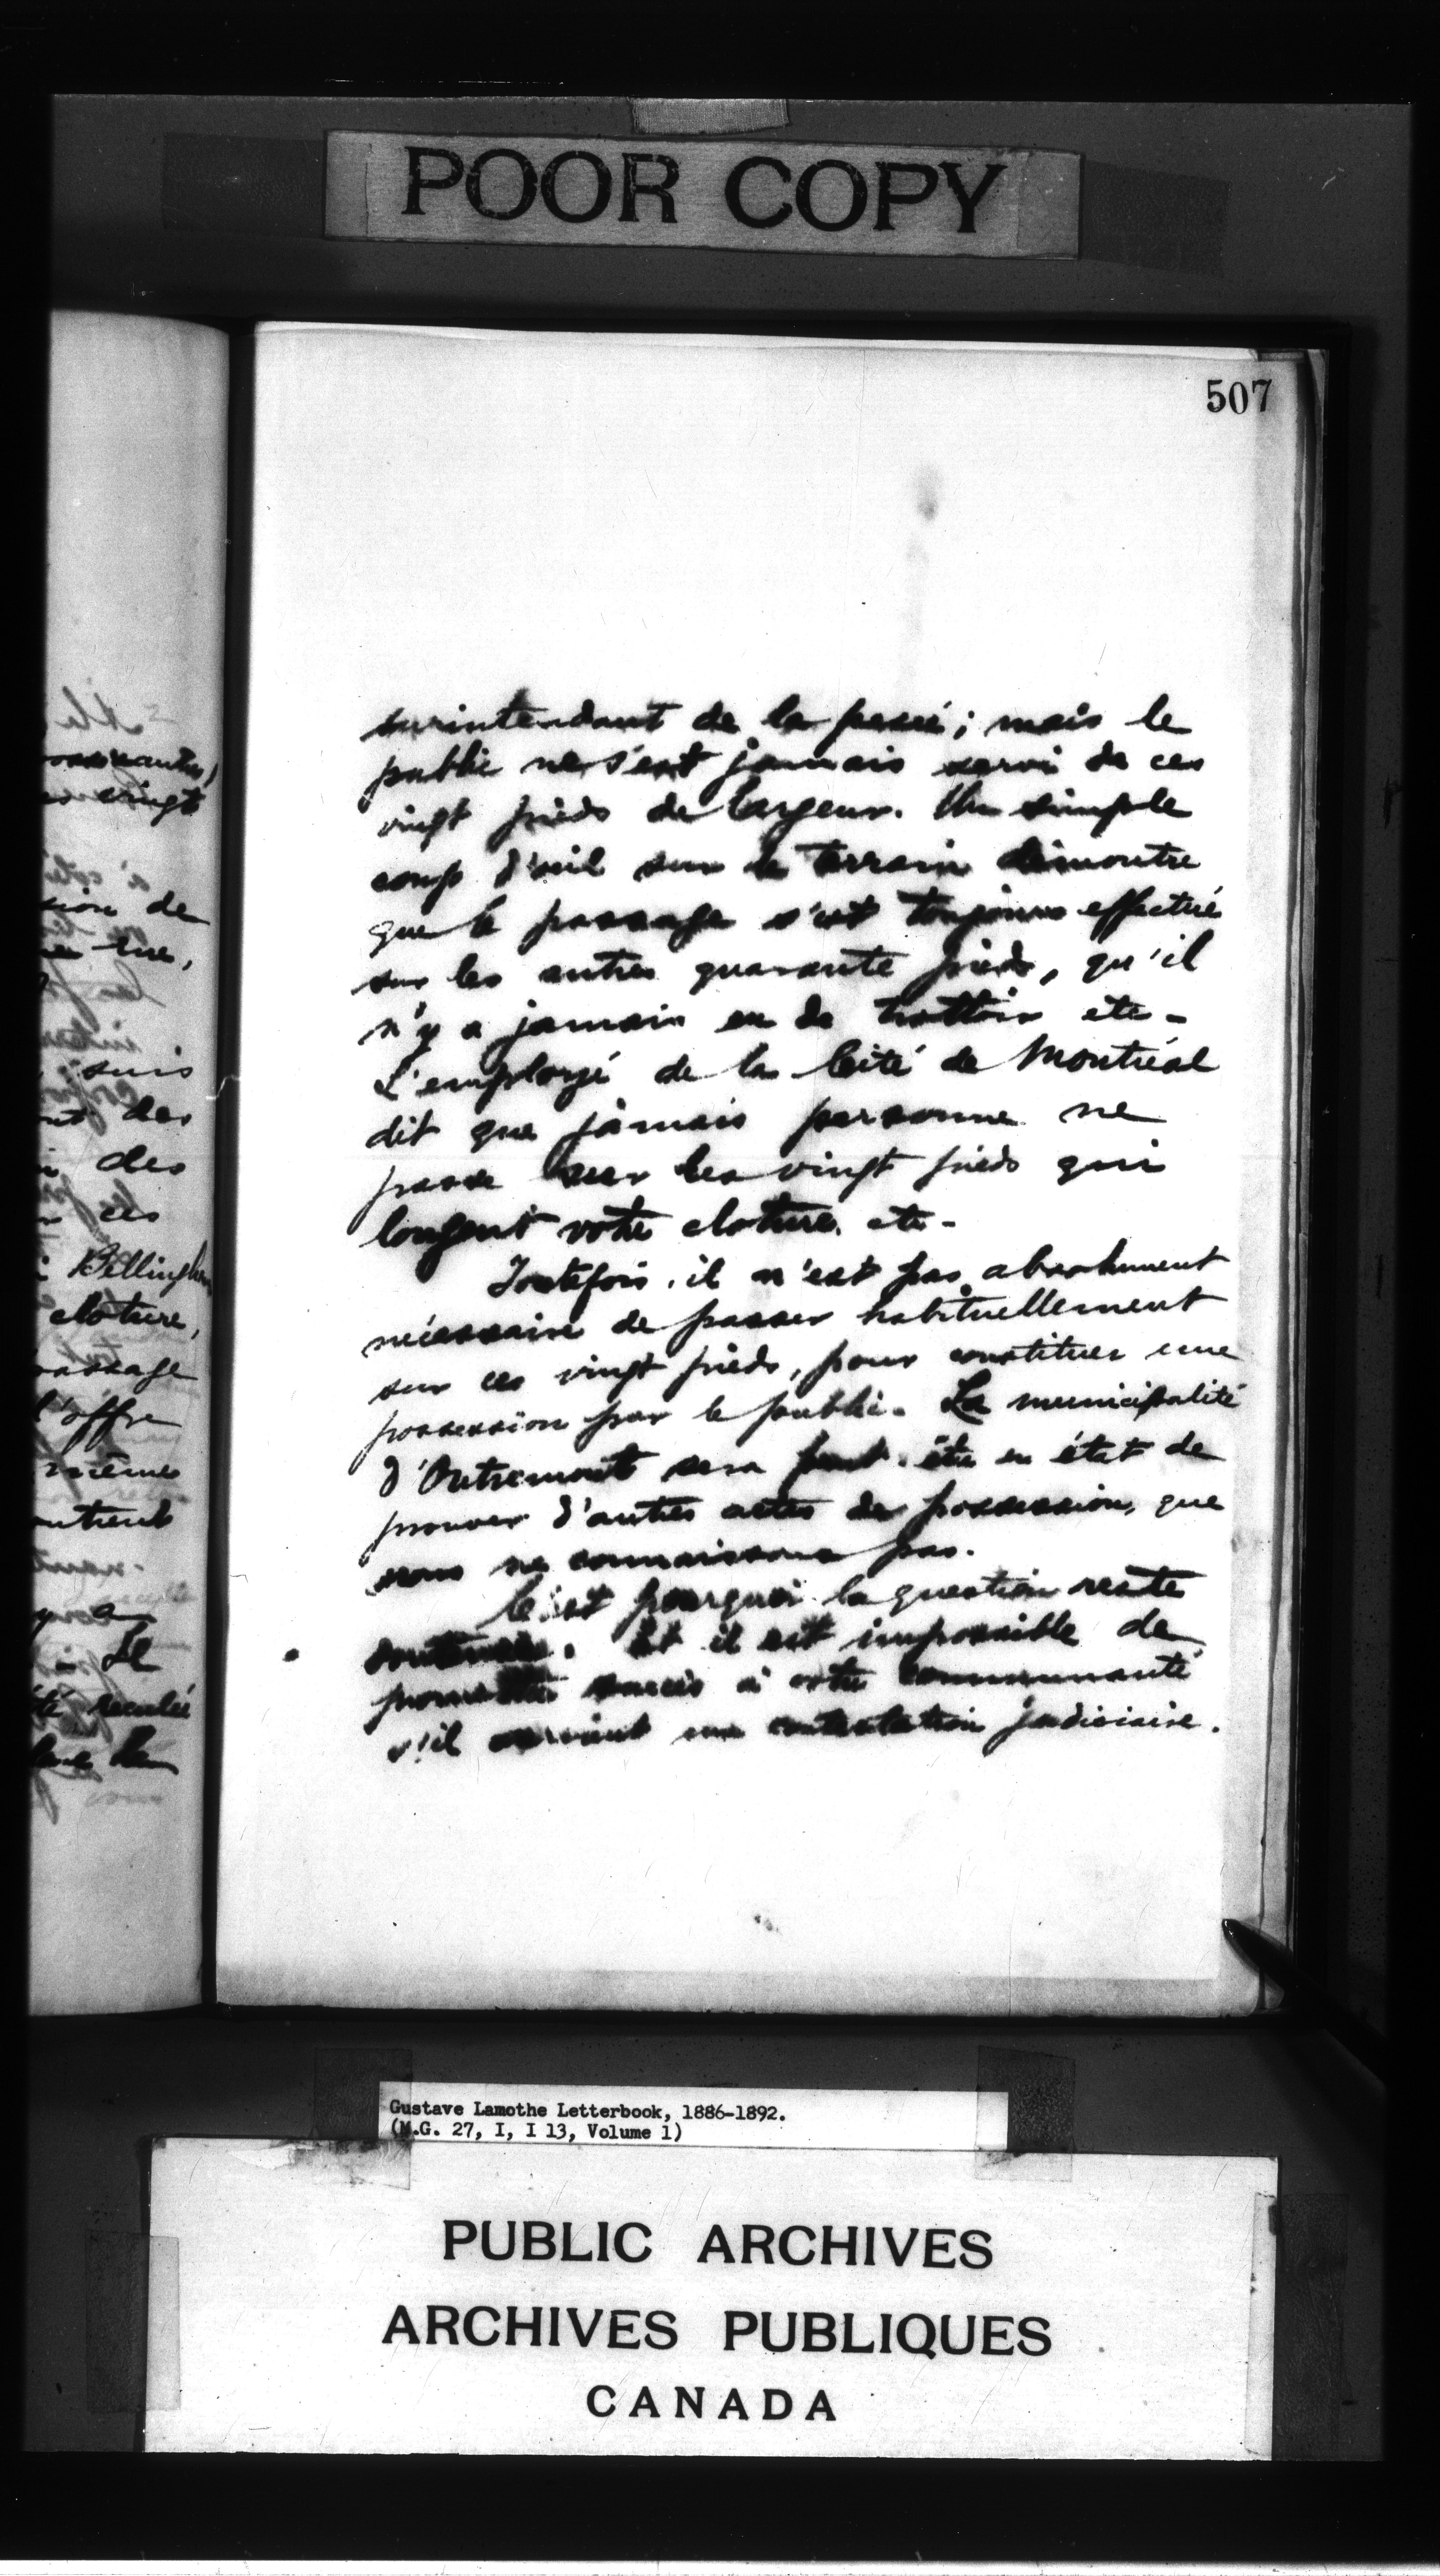 POOR COPY
507
surintendant de la ; mais le
public ne s'est jamais servi de ces
vingt pieds de largeur. Un simple
coup d'œil sur le terrain démontre
que le passage s'est toujours effectué
sur les autres quarante pieds, qu'il
n'y a jamais eu de trottoir etc-
L'employé de la Cité de Montréal
dit que jamais personne ne
passe sur les vingt pieds qui
longent votre cloture. etc-
Toutefois, il n'est pas absolument
nécessaire de passer habituellement
sur ces vingt pieds, pour constituer une
possession par le public. La municipalité
d'Outremont sera peut-être en état de
prouver d'autres actes de possession, que
nous ne connaissons pas.
C'est pourquoi la question reste
douteuse. Et il est impossible de
promettre succès à votre communauté
s'il survient une contestation judiciaire.
sion de
rue,
suis
des
des
ces
Bellingham
cloture,
passage
l'offre
mêmes
vingt
y a
Il
reculée
Gustave Lamothe Letterbook, 1886-1892.
(M.G. 27, I, I 13, Volume 1)
PUBLIC ARCHIVES
ARCHIVES PUBLIQUES
CANADA